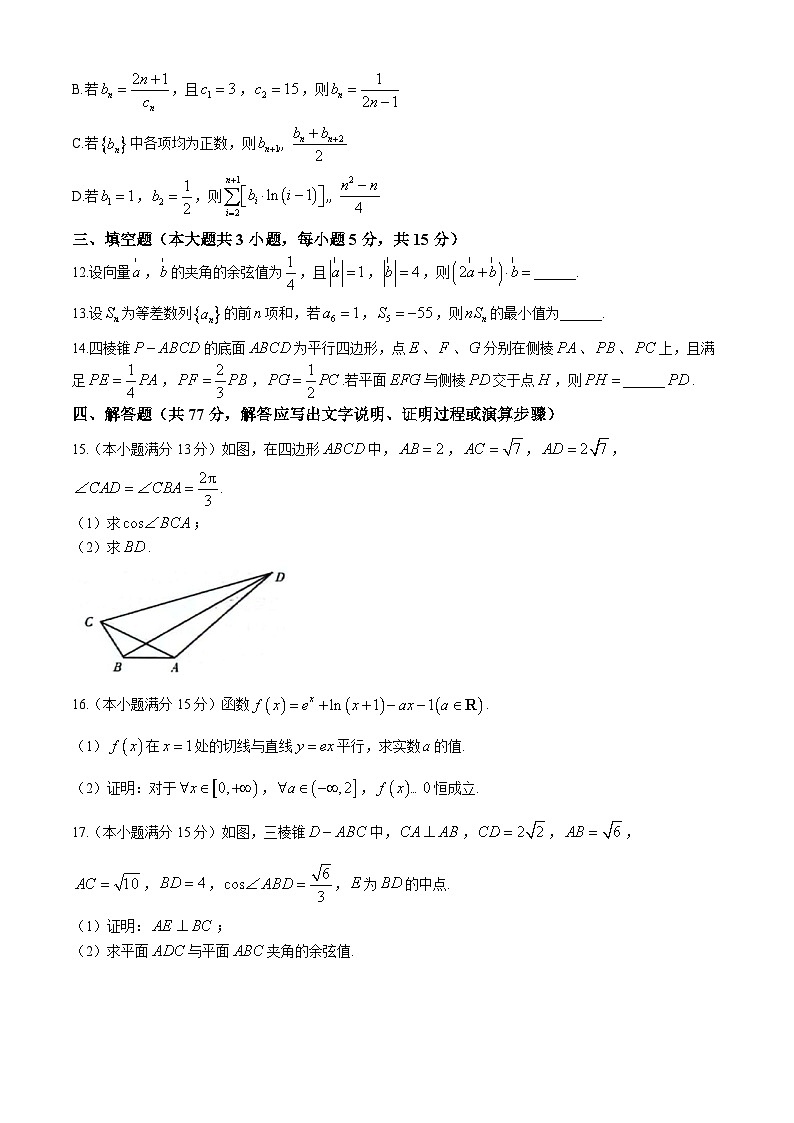 B.若 $b_n=\dfrac{2n+1}{c_n}$,且 $c_1=3$,$c_2=15$,则 $b_n=\dfrac{1}{2n-1}$
C.若 $\{b_n\}$ 中各项均为正数,则 $b_{n+1},,\dfrac{b_n+b_{n+2}}{2}$
D.若 $b_1=1$,$b_2=\dfrac{1}{2}$,则 $\sum_{i=2}^{n+1}[b_i\cdot\ln(i-1)],,\dfrac{n^2-n}{4}$
三、填空题(本大题共 3 小题,每小题 5 分,共 15 分)
12.设向量 $\overset{!}{a}$,$\overset{!}{b}$ 的夹角的余弦值为 $\dfrac{1}{4}$,且 $|\overset{!}{a}|=1$,$|\overset{!}{b}|=4$,则 $(2\overset{!}{a}+\overset{!}{b})\cdot\overset{!}{b}=$______.
13.设 $S_n$ 为等差数列 $\{a_n\}$ 的前 $n$ 项和,若 $a_6=1$,$S_5=-55$,则 $nS_n$ 的最小值为______.
14.四棱锥 $P-ABCD$ 的底面 $ABCD$ 为平行四边形,点 $E$、$F$、$G$ 分别在侧棱 $PA$、$PB$、$PC$ 上,且满
足 $PE=\dfrac{1}{4}PA$,$PF=\dfrac{2}{3}PB$,$PG=\dfrac{1}{2}PC$.若平面 $EFG$ 与侧棱 $PD$ 交于点 $H$,则 $PH=$______$PD$.
四、解答题(共 77 分,解答应写出文字说明、证明过程或演算步骤)
15.(本小题满分 13 分)如图,在四边形 $ABCD$ 中,$AB=2$,$AC=\sqrt{7}$,$AD=2\sqrt{7}$,
$\angle CAD=\angle CBA=\dfrac{2\pi}{3}$.
(1)求 $\cos\angle BCA$;
(2)求 $BD$.
D
C
B A
16.(本小题满分 15 分)函数 $f(x)=e^x+\ln(x+1)-ax-1(a\in\mathbf{R})$.
(1)$f(x)$ 在 $x=1$ 处的切线与直线 $y=ex$ 平行,求实数 $a$ 的值.
(2)证明:对于 $\forall x\in[0,+\infty)$,$\forall a\in(-\infty,2]$,$f(x)\ldots 0$ 恒成立.
17.(本小题满分 15 分)如图,三棱锥 $D-ABC$ 中,$CA\perp AB$,$CD=2\sqrt{2}$,$AB=\sqrt{6}$,
$AC=\sqrt{10}$,$BD=4$,$\cos\angle ABD=\dfrac{\sqrt{6}}{3}$,$E$ 为 $BD$ 的中点.
(1)证明:$AE\perp BC$;
(2)求平面 $ADC$ 与平面 $ABC$ 夹角的余弦值.